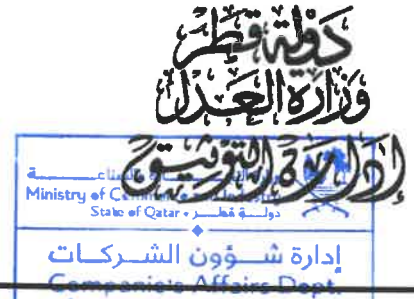 دولة قطر
وزارة العدل
إدارة التوثيق
Ministry of
State of Qatar • دولة قطر
إدارة شؤون الشركات
Companie's Affairs Dept.